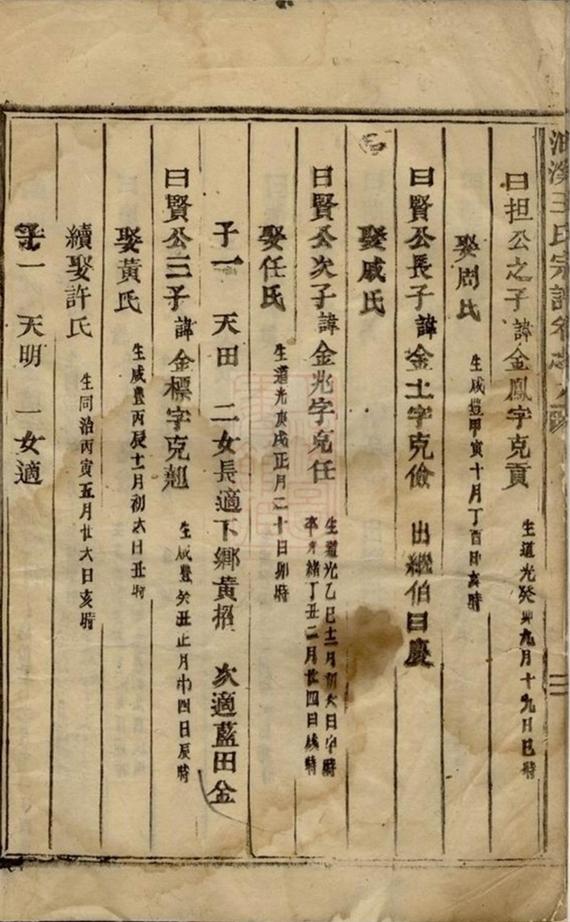 王氏宗譜卷之
曰担公之子諱金鳳字克貢 生道光癸卯九月十九日巳時
娶周氏 生咸豐甲寅十月丁酉日亥時
曰賢公長子諱金土字克儉 出繼伯曰慶
娶戚氏
曰賢公次子諱金兆字克任 生道光乙巳十一月初六日子時 卒光緒丁丑二月廿四日戌時
娶任氏 生道光庚戌正月二十日卯時
子一 天田 二女長適下鄉黃招 次適藍田金
曰賢公三子諱金標字克翘 生咸豐癸丑正月十四日辰時
娶黃氏 生咸豐丙辰十一月初六日丑時
續娶許氏 生同治丙寅五月廿六日亥時
子一 天明 一女適